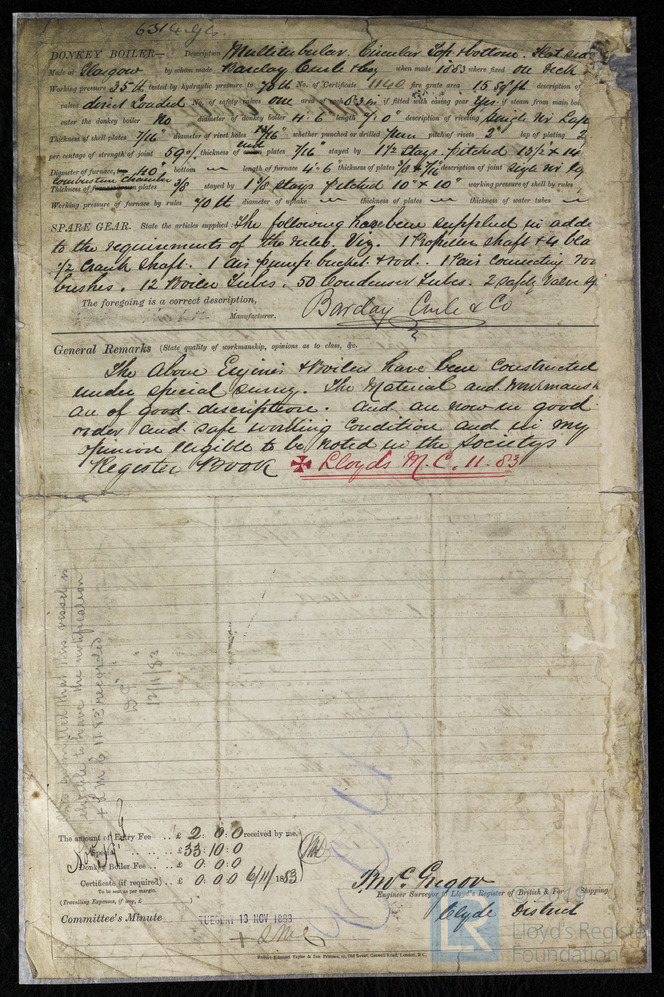 6314 Gls
DONKEY BOILER— Description Multitubular. Circular Top & bottom. Flat
Made at Glasgow by whom made Barclay Curle & Co when made 1883 where fixed on Deck
Working pressure 35 lb tested by hydraulic pressure to 70 lb No. of Certificate 1140 fire grate area 15 sq ft description of
valves direct Loaded No. of safety valves one area of each 8.3 in if fitted with casing gear yes if steam from main boil
enter the donkey boiler No diameter of donkey boiler 4.6 length 7.0 description of riveting Single riv Lap
Thickness of shell plates 7/16 diameter of rivet holes 13/16 whether punched or drilled pun pitch of rivets 2" lap of plating 2
per centage of strength of joint 59% thickness of end plates 7/16 stayed by 1 1/2 Stays. pitched 13 1/2 x 14
Diameter of furnace, 40" bottom length of furnace 4.6 thickness of plates 3/8 & 7/16 description of joint single riv lap
combustion chamber
Thickness of plates 3/8 stayed by 1 1/8 stays pitched 10" x 10" working pressure of shell by rules
Working pressure of furnace by rules 70 lb diameter of uptake thickness of plates thickness of water tubes
SPARE GEAR. State the articles supplied: The following has been supplied in addi
to the requirements of the rules. Viz. 1 Propeller shaft & 4 bla
1/2 Crank Shaft. 1 air pump bucket & rod. 1 Pair Connecting rod
bushes. 12 Boiler Tubes. 50 Condenser Tubes. 2 safety Valve sp
The foregoing is a correct description,
Manufacturer. Barclay Curle & Co
General Remarks (State quality of workmanship, opinions as to class, &c.
The above Engines & Boilers have been constructed
under special survey. The Material and workmansh
are of good description. and are now in good
order and safe working condition and in my
opinion eligible to be noted in the Societys
Register Book ✠ Lloyds M.C. 11.83
It is submitted that this vessel is
eligible to have the notification
+ LMC 11.83 recorded.
12/11/83
The amount of Entry Fee .. £ 2 : 0 : 0 received by me,
Special .. £ 33 : 10 : 0
Donkey Boiler Fee .. £ 0 : 0 : 0
Certificate (if required) .. £ 0 : 0 0 6/11/1883
To be sent as per margin.
(Travelling Expenses, if any, £ )
J McGregor
Engineer Surveyor to Lloyd's Register of British & For Shipping
Clyde District
Committee's Minute TUESDAY 13 NOV 1883
+ LMC
© 2019
LR
Lloyd's Register
Foundation